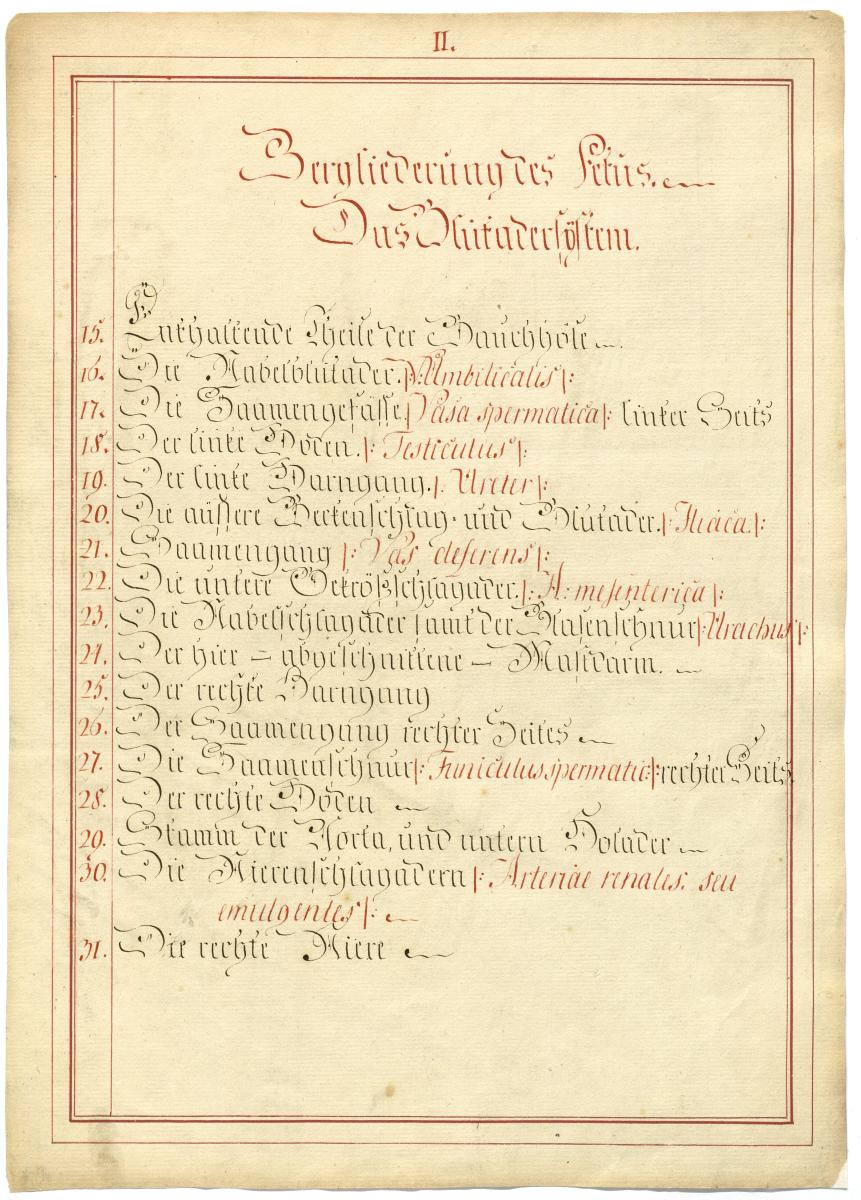 II.
Zergliederung des Fetus.
Das Blutadersÿstem.
15. Enthaltende Theile der Bauchhöle.
16. Die Nabelblutader. |: V: Umbilicalis |:
17. Die Saamengefässe |: Vasa spermatica |: linker Seits
18. Der linke Hoden. |: Testiculus |:
19. Der linke Harngang. |: Ureter |:
20. Die äussere Beckenschlag- und Blutader. |: Iliaca |:
21. Saamengang |: Vas deferens |:
22. Die untere Gekrösschlagader. |: A: mesenterica |:
23. Die Nabelschlagader samt der Blasenschnur |: Urachus |:
24. Der hier = abgeschnittene = Mastdarm.
25. Der rechte Harngang
26. Der Saamengang rechter Seites
27. Die Saamenschnur |: Funiculus spermatic: |: rechter Seits
28. Der rechte Hoden
29. Stamm der Aorta, und untern Holader
30. Die Nierenschlagadern |: Arteriae renales. seu
emulgentes |:
31. Die rechte Niere